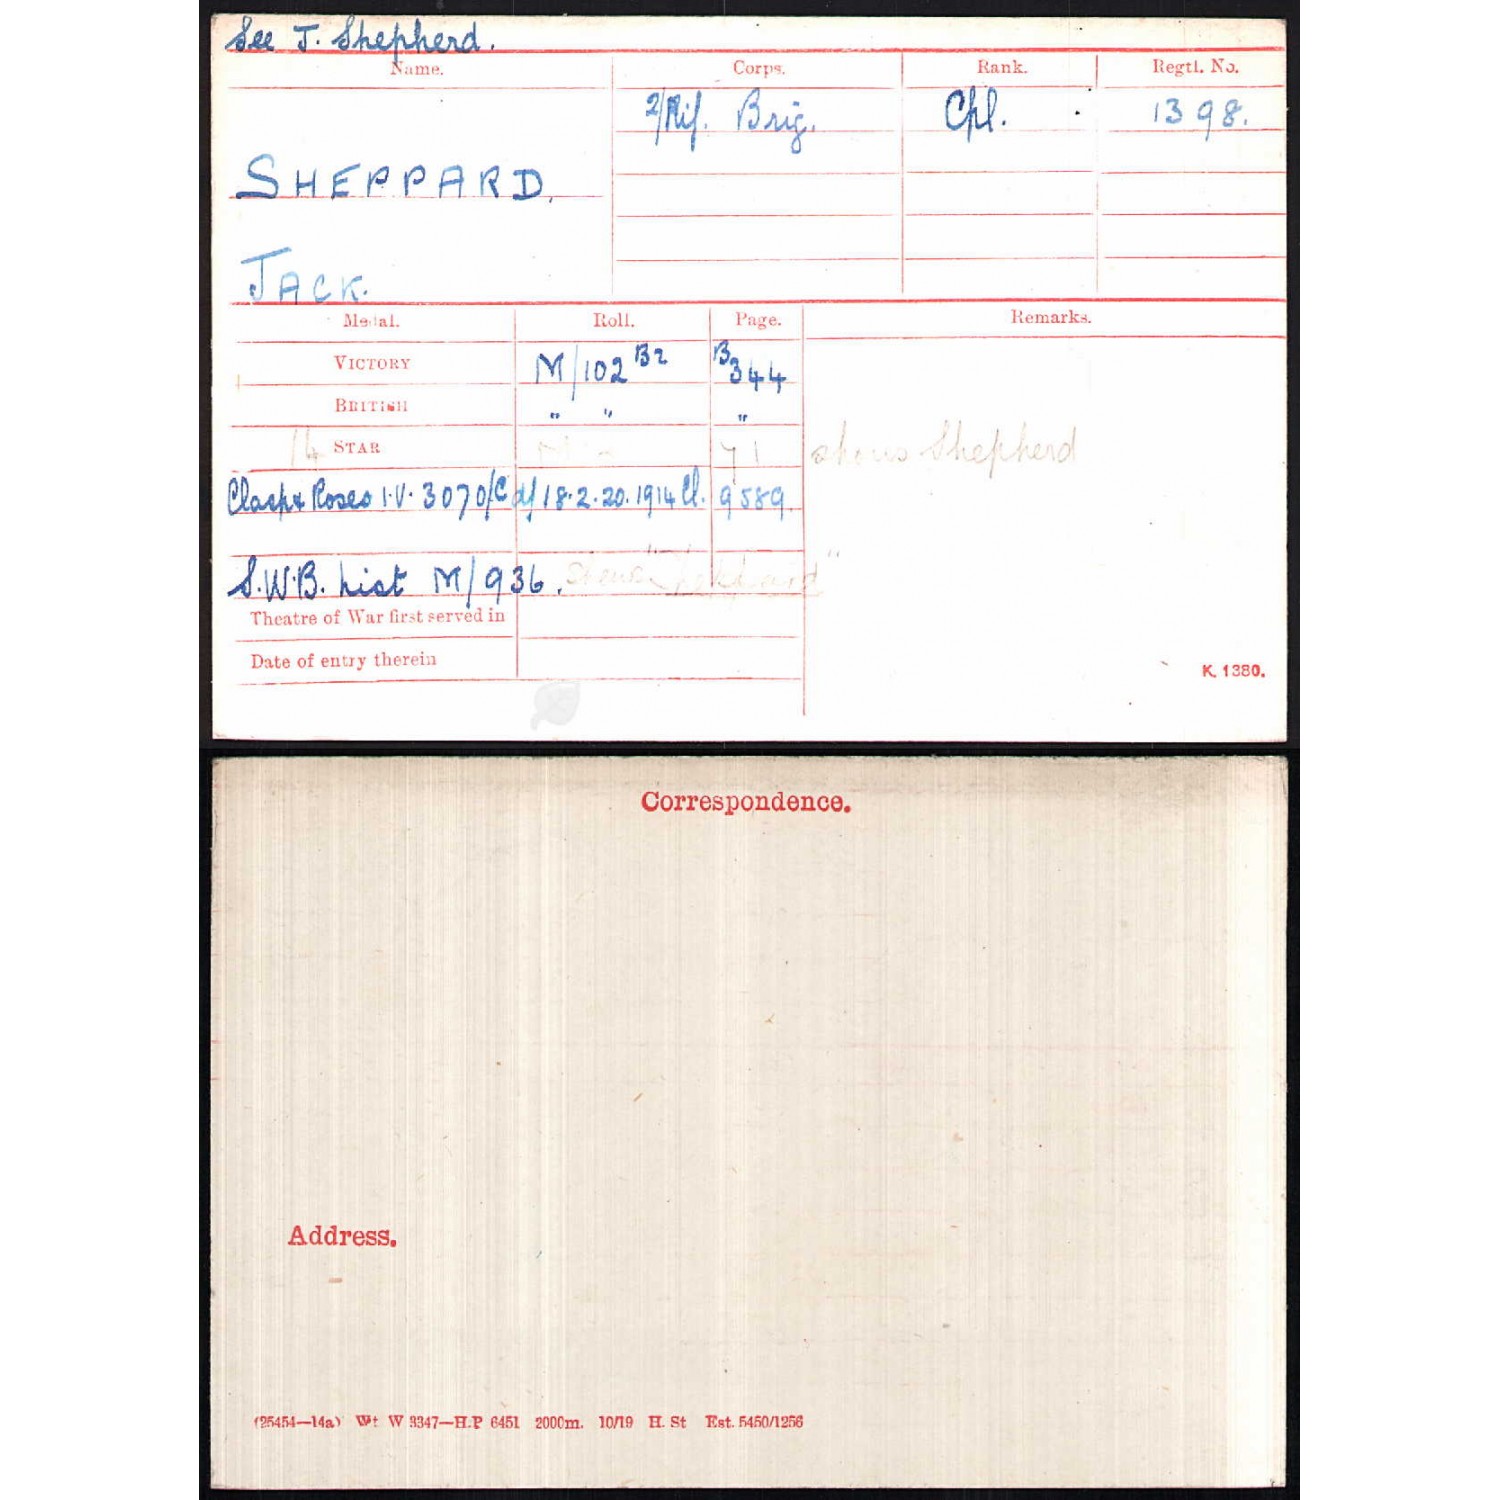 See J. Shepherd.
Name. Corps. Rank. Regtl. No.
2/Rif. Brig. Cpl. 1398.
SHEPPARD,
JACK.
Medal. Roll. Page. Remarks.
VICTORY M/102 B2 B 344
BRITISH " " "
14 STAR 71 shows Shepherd
Clasp & Roses I.V. 3070/C df 18.2.20. 1914 Cl. 9589.
S.W.B. List M/936.
Theatre of War first served in
Date of entry therein
K. 1380.
Correspondence.
Address.
(25454—14a) Wt W 3347—H.P 6451 2000m. 10/19 H. St Est. 5450/1256